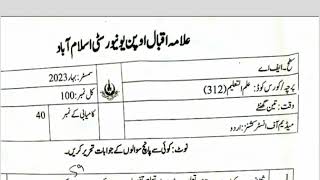 علامہ اقبال اوپن یونیورسٹی اسلام آباد
سطح: ایف اے
سمسٹر: بہار 2023
پرچہ/کورس کوڈ: علم التعلیم (312)
کل نمبر: 100
وقت: تین گھنٹے
کامیابی کے نمبر 40
میڈیم آف انسٹرکشنز: اردو
نوٹ: کوئی سے پانچ سوالوں کے جوابات تحریر کریں۔